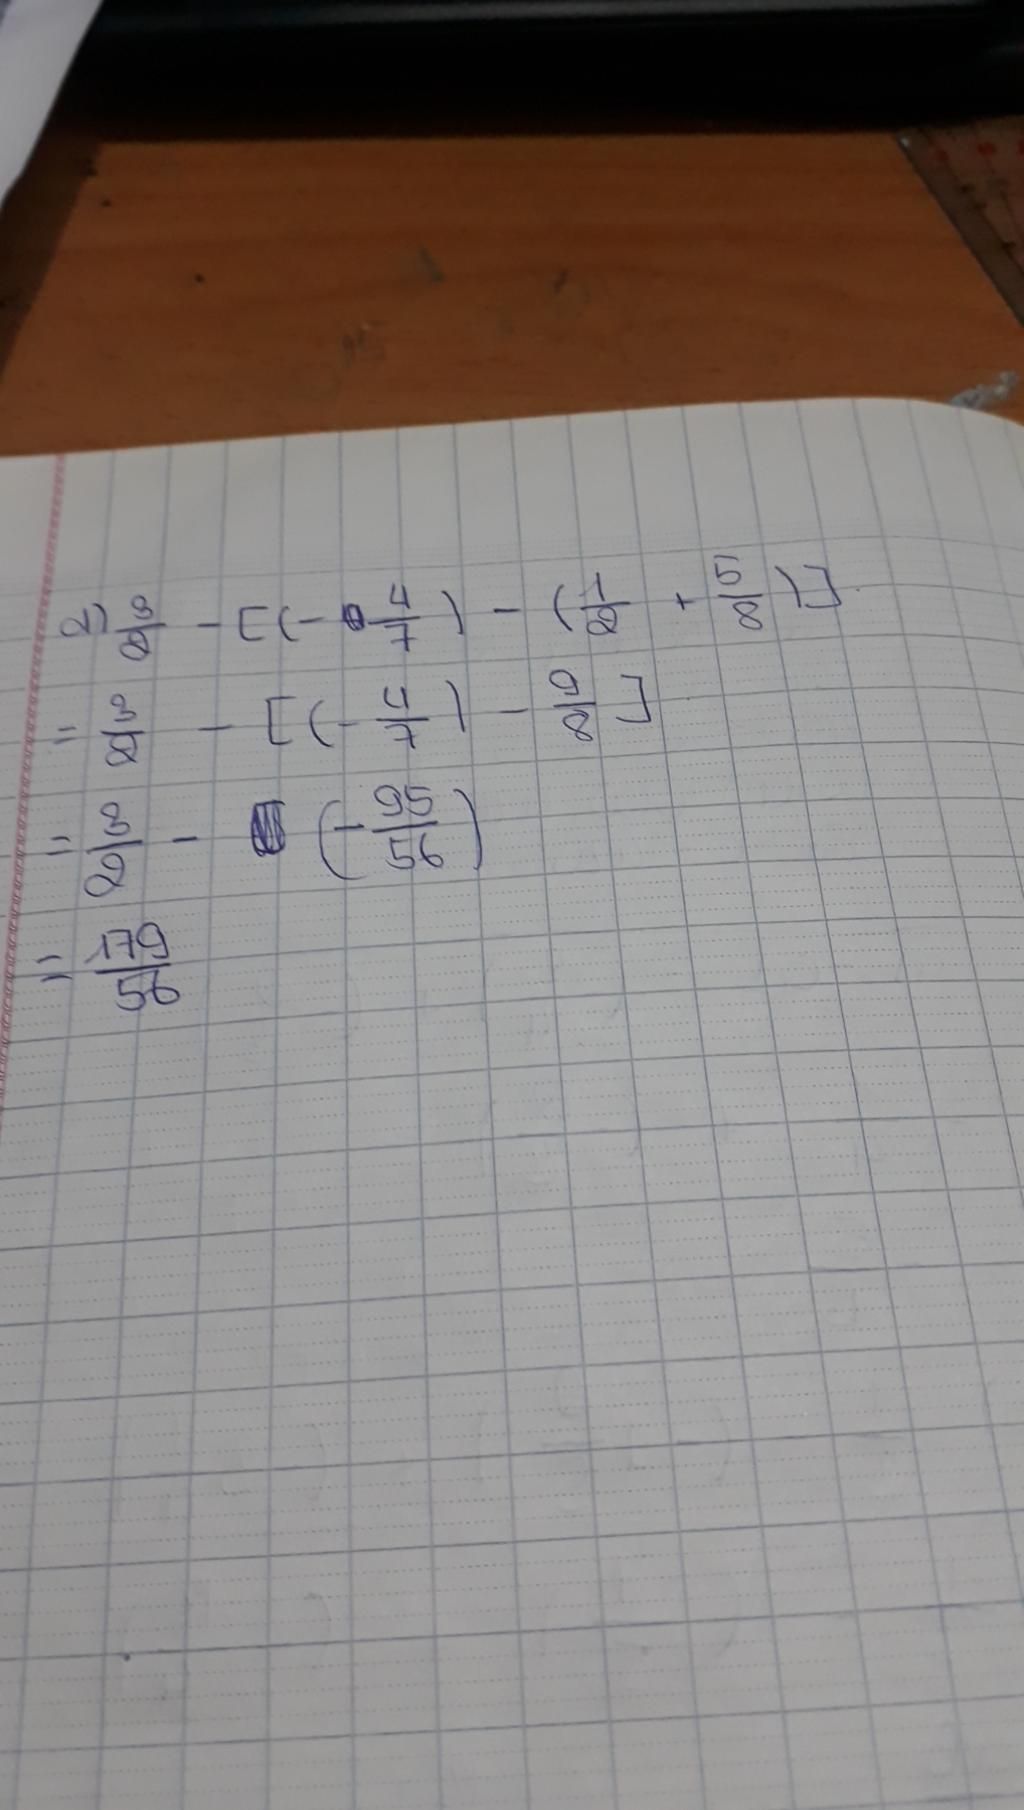 d) 3/2 - [(- 4/7) - (1/2 + 5/8)]
= 3/2 - [(- 4/7) - 9/8]
= 3/2 - (- 95/56)
= 179/56